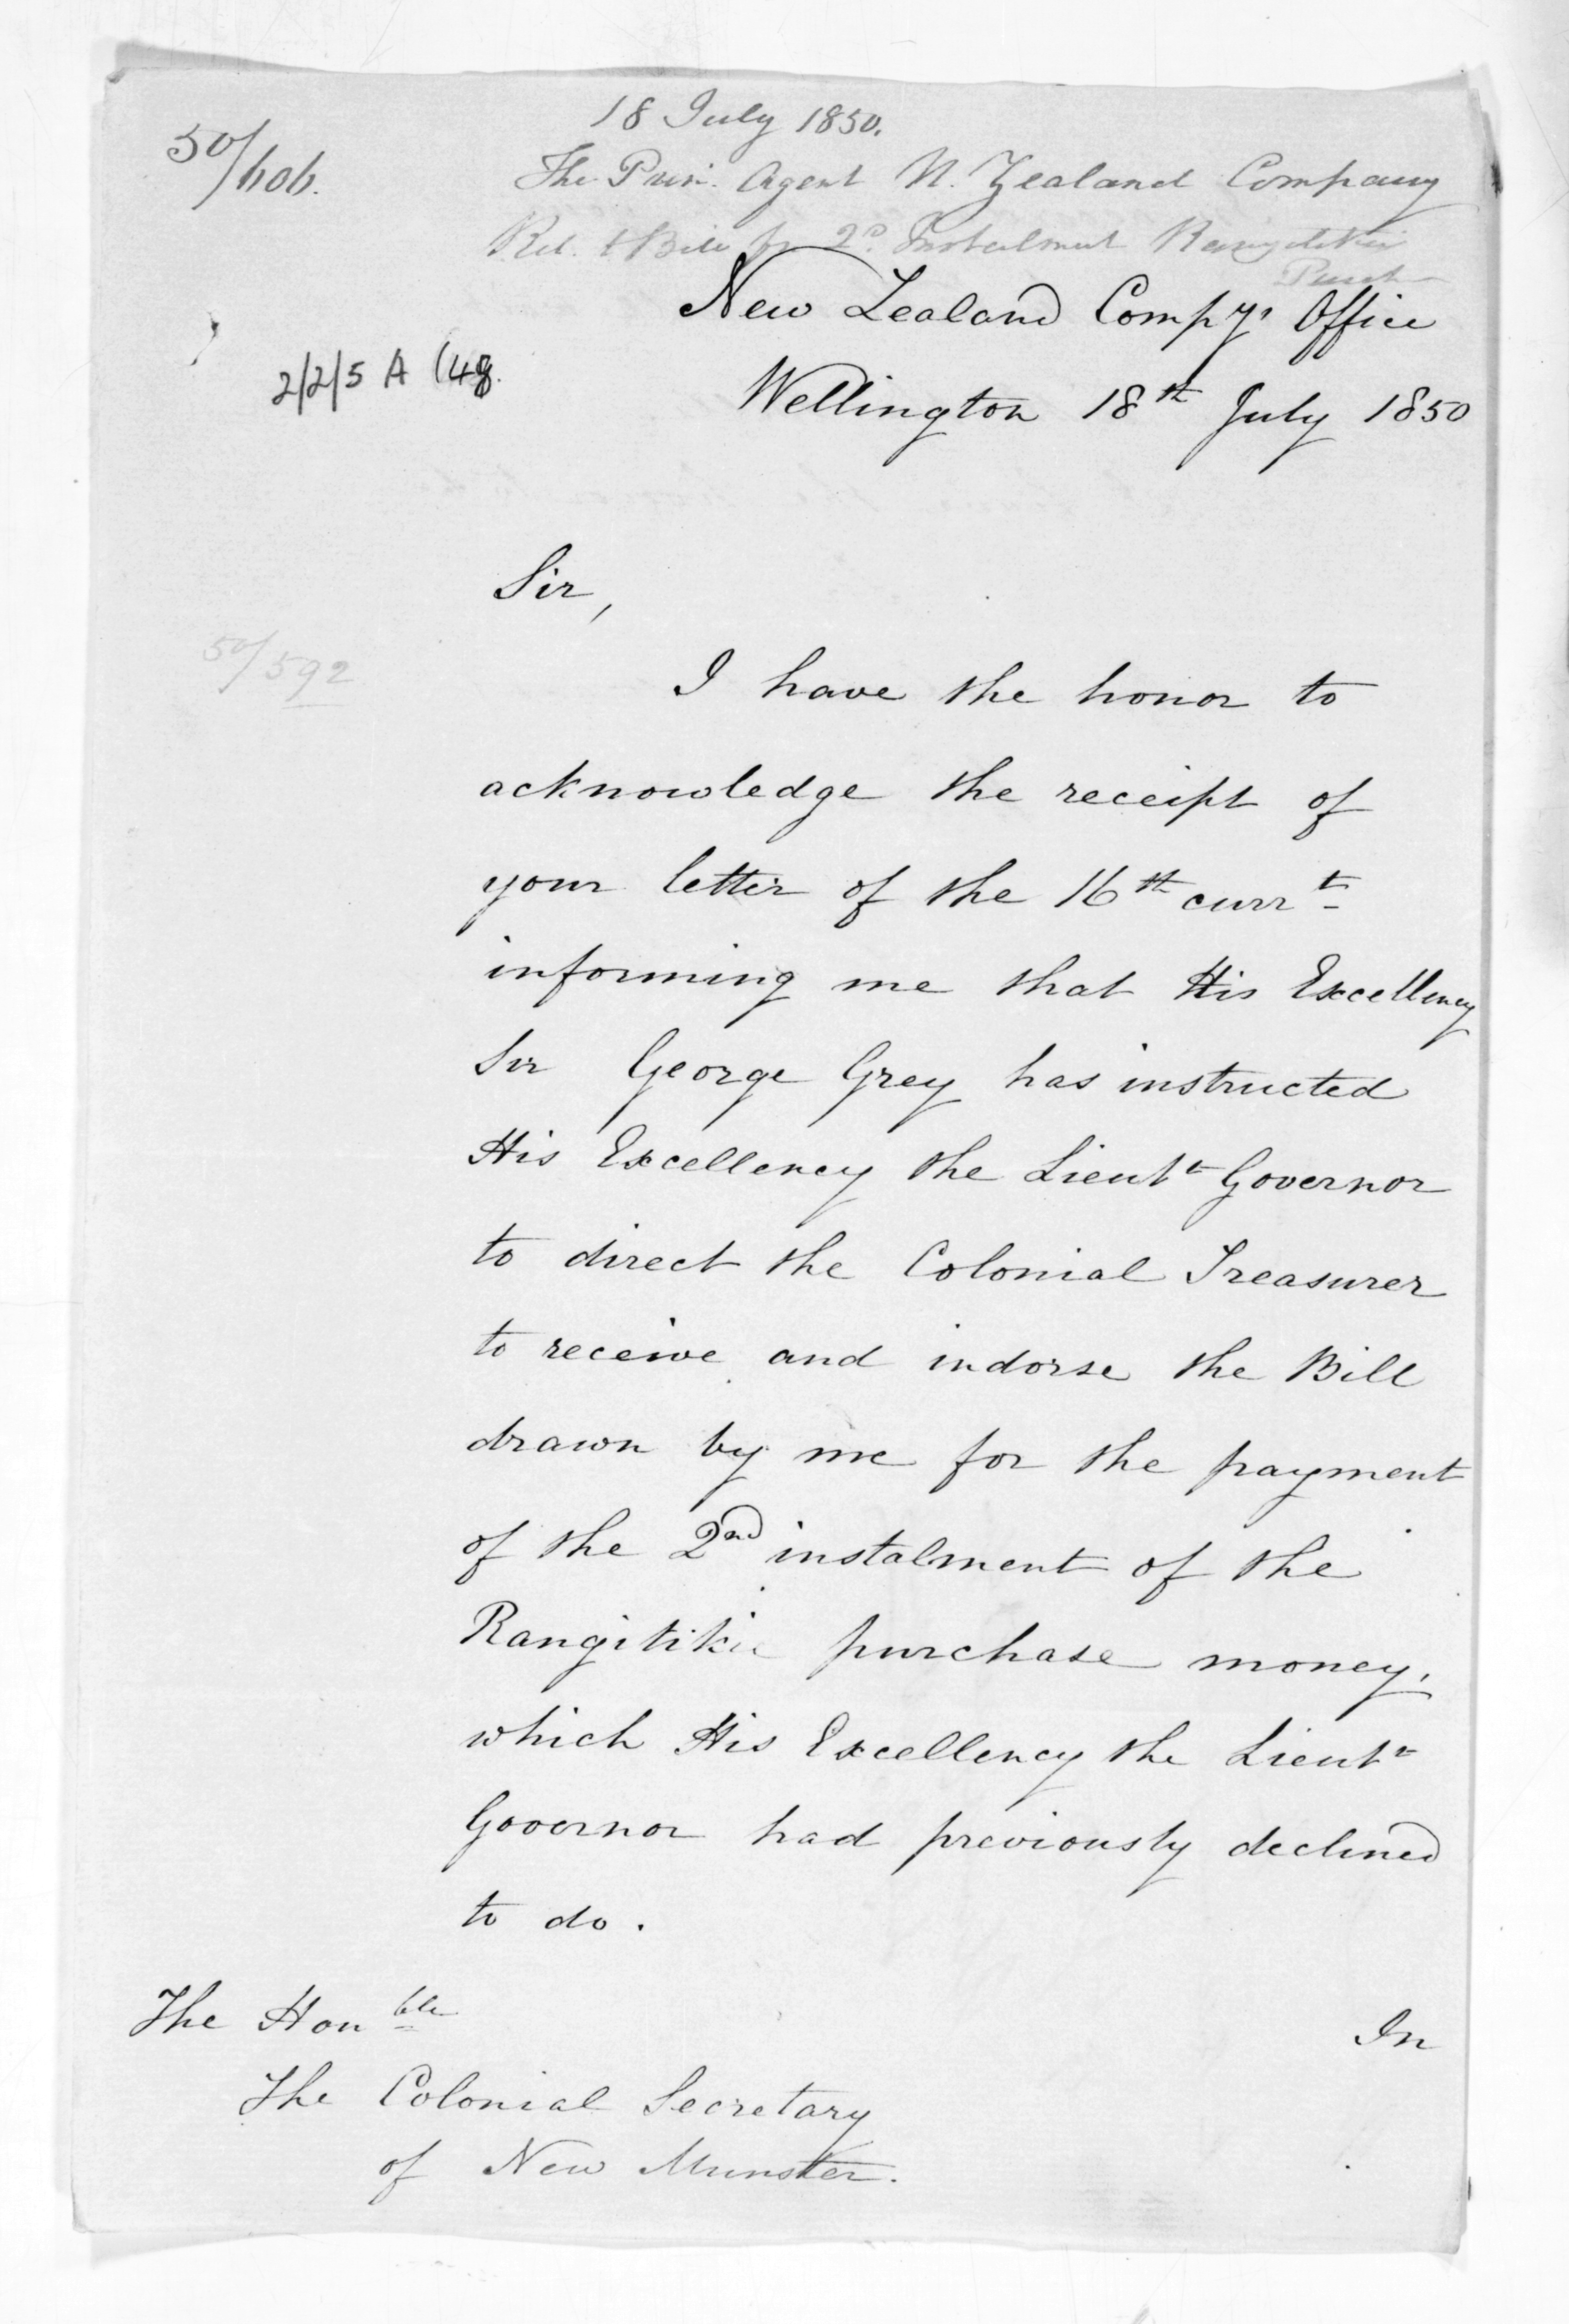 50/606.
18 July 1850.
The Prin. Agent N. Zealand Company
Rel. t Bill for 2d. Instalment Rangitikei
Purch
New Zealand Compy's Office
2/2/5 A (48.
Wellington 18th July 1850
Sir,
50/592
I have the honor to
acknowledge the receipt of
your letter of the 16th currt
informing me that His Excellency
Sir George Grey has instructed
His Excellency the Lieutt Governor
to direct the Colonial Treasurer
to receive and indorse the Bill
drawn by me for the payment
of the 2nd instalment of the
Rangitikie purchase money,
which His Excellency the Lieutt
Governor had previously declined
to do.
The Honble
In
The Colonial Secretary
of New Munster.